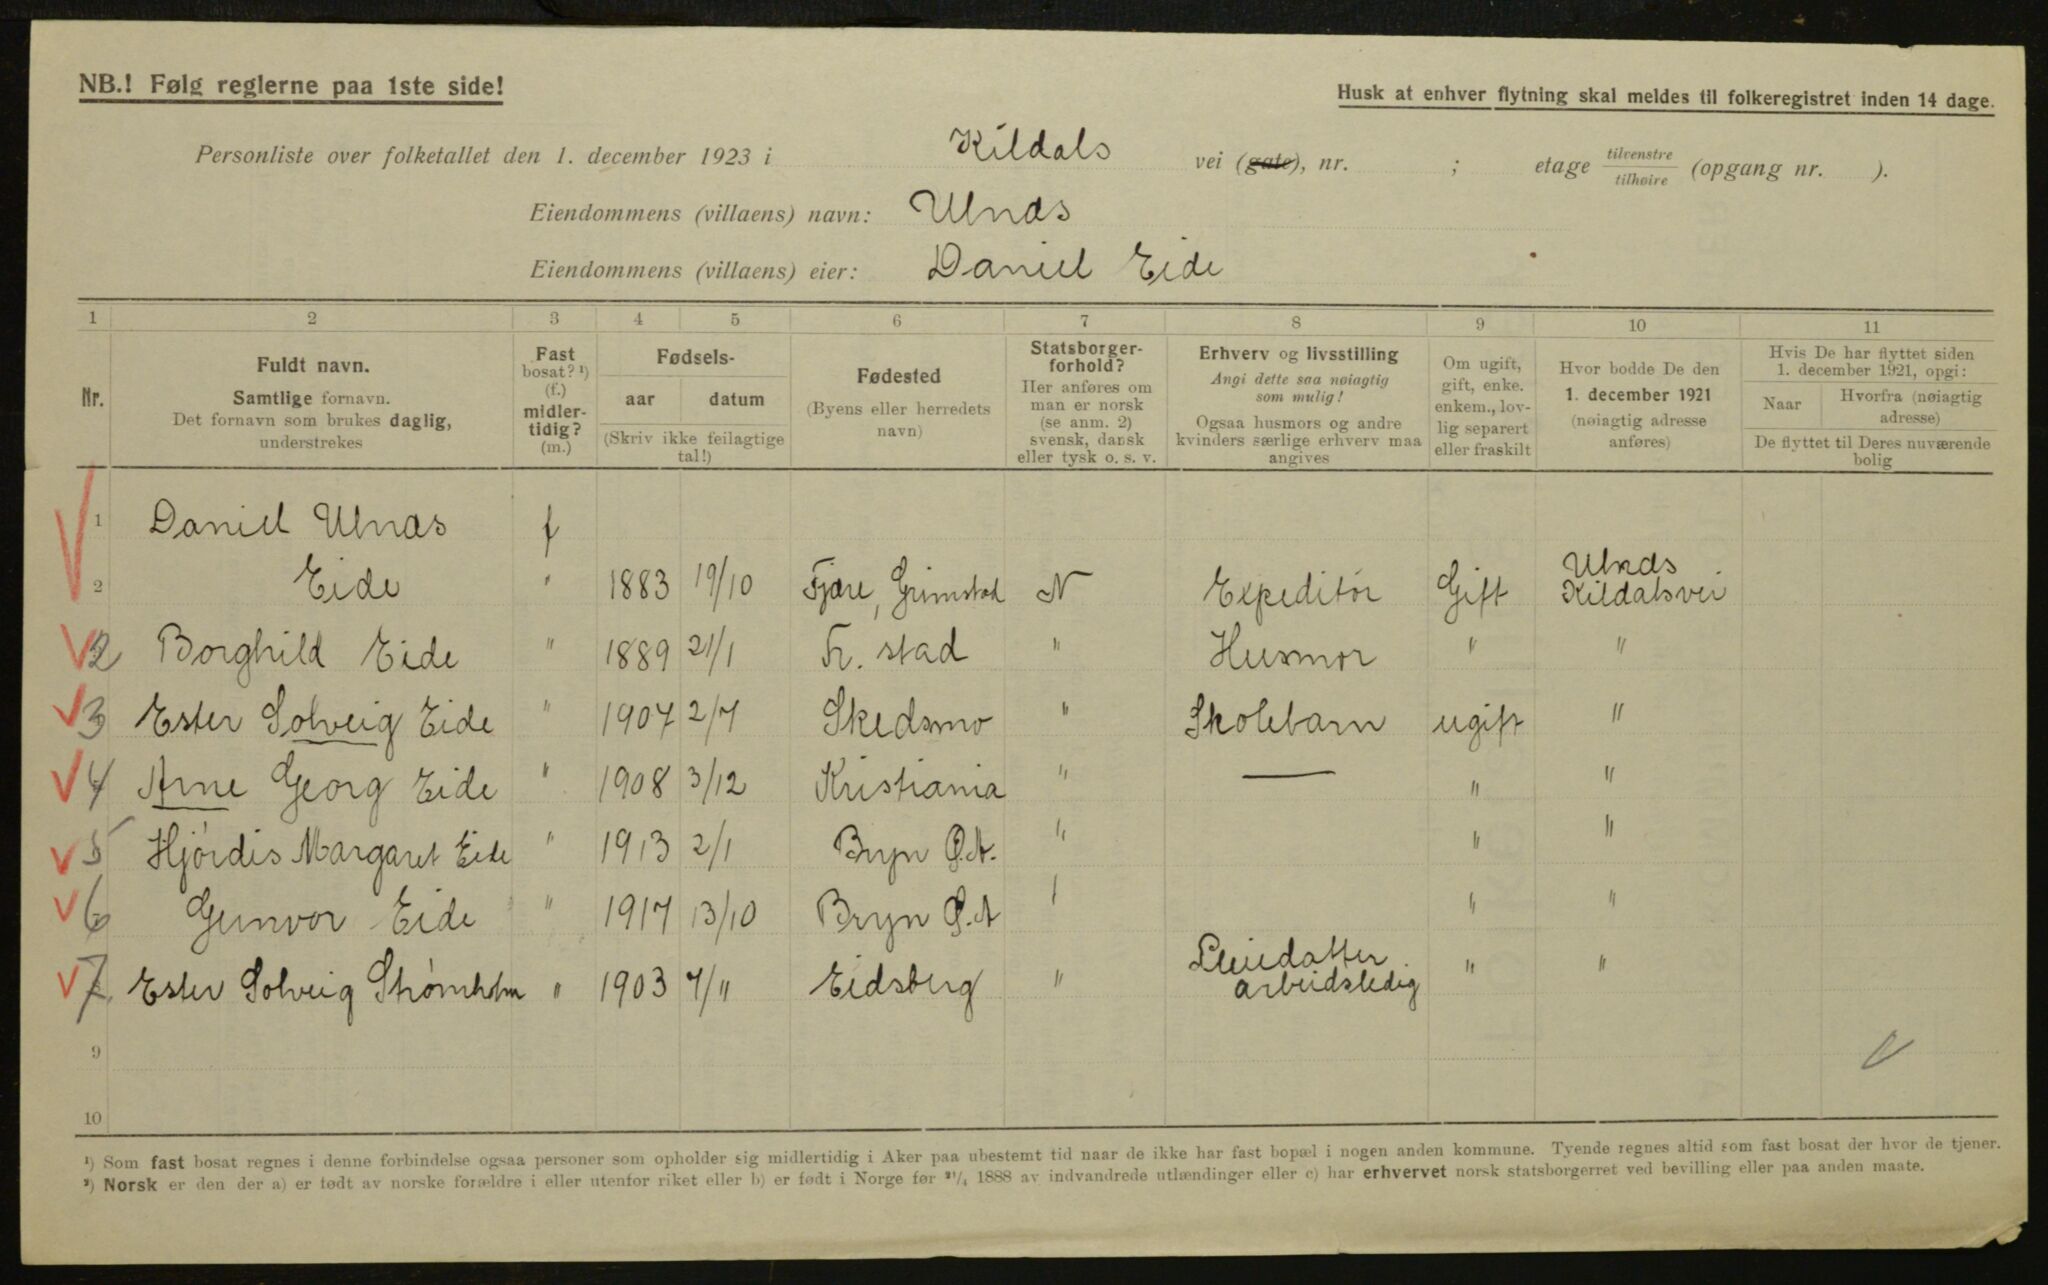 NB.! Følg reglerne paa 1ste side!
Husk at enhver flytning skal meldes til folkeregistret inden 14 dage.
Personliste over folketallet den 1. december 1923 i Kildals vei (gate), nr. ; etage tilvenstre tilhøire (opgang nr. ).
Eiendommens (villaens) navn: Ulnds
Eiendommens (villaens) eier: Daniel Eide
1 2 3 4 5 6 7 8 9 10 11
Nr.
Fuldt navn.
Samtlige fornavn.
Det fornavn som brukes daglig,
understrekes
Fast
bosat? ¹)
(f.)
midler-
tidig?
(m.)
Fødsels-
aar datum
(Skriv ikke feilagtige
tal!)
Fødested
(Byens eller herredets
navn)
Statsborger-
forhold?
Her anføres om
man er norsk
(se anm. 2)
svensk, dansk
eller tysk o. s. v.
Erhverv og livsstilling
Angi dette saa nøiagtig
som mulig!
Ogsaa husmors og andre
kvinders særlige erhverv maa
angives
Om ugift,
gift, enke.
enkem., lov-
lig separert
eller fraskilt
Hvor bodde De den
1. december 1921
(nøiagtig adresse
anføres)
Hvis De har flyttet siden
1. december 1921, opgi:
Naar
Hvorfra (nøiagtig
adresse)
De flyttet til Deres nuværende
bolig
1 Daniel Ulnds f
2 Eide " 1883 19/10 Fjære, Grimstad N Expeditør Gift Ulnds Kildalsvei
2 Borghild Eide " 1889 21/1 Fr. stad " Husmor " "
3 Ester Solveig Eide " 1907 2/7 Skedsmo " Skolebarn ugift "
4 Arne Georg Eide " 1908 3/12 Kristiania " — " "
5 Hjórdis Margaret Eide " 1913 2/1 Bryn Ø.A. " " "
6 Gunvor Eide " 1917 13/10 Bryn Ø.A " "
7 Ester Solveig Strømholm " 1903 7/11 Eidsberg " Pleiedatter arbeidsledig " "
9
10
¹) Som fast bosat regnes i denne forbindelse ogsaa personer som opholder sig midlertidig i Aker paa ubestemt tid naar de ikke har fast bopæl i nogen anden kommune. Tyende regnes altid som fast bosat der hvor de tjener.
²) Norsk er den der a) er født av norske forældre i eller utenfor riket eller b) er født i Norge før ²¹/₄ 1888 av indvandrede utlændinger eller c) har erhvervet norsk statsborgerret ved bevilling eller paa anden maate.